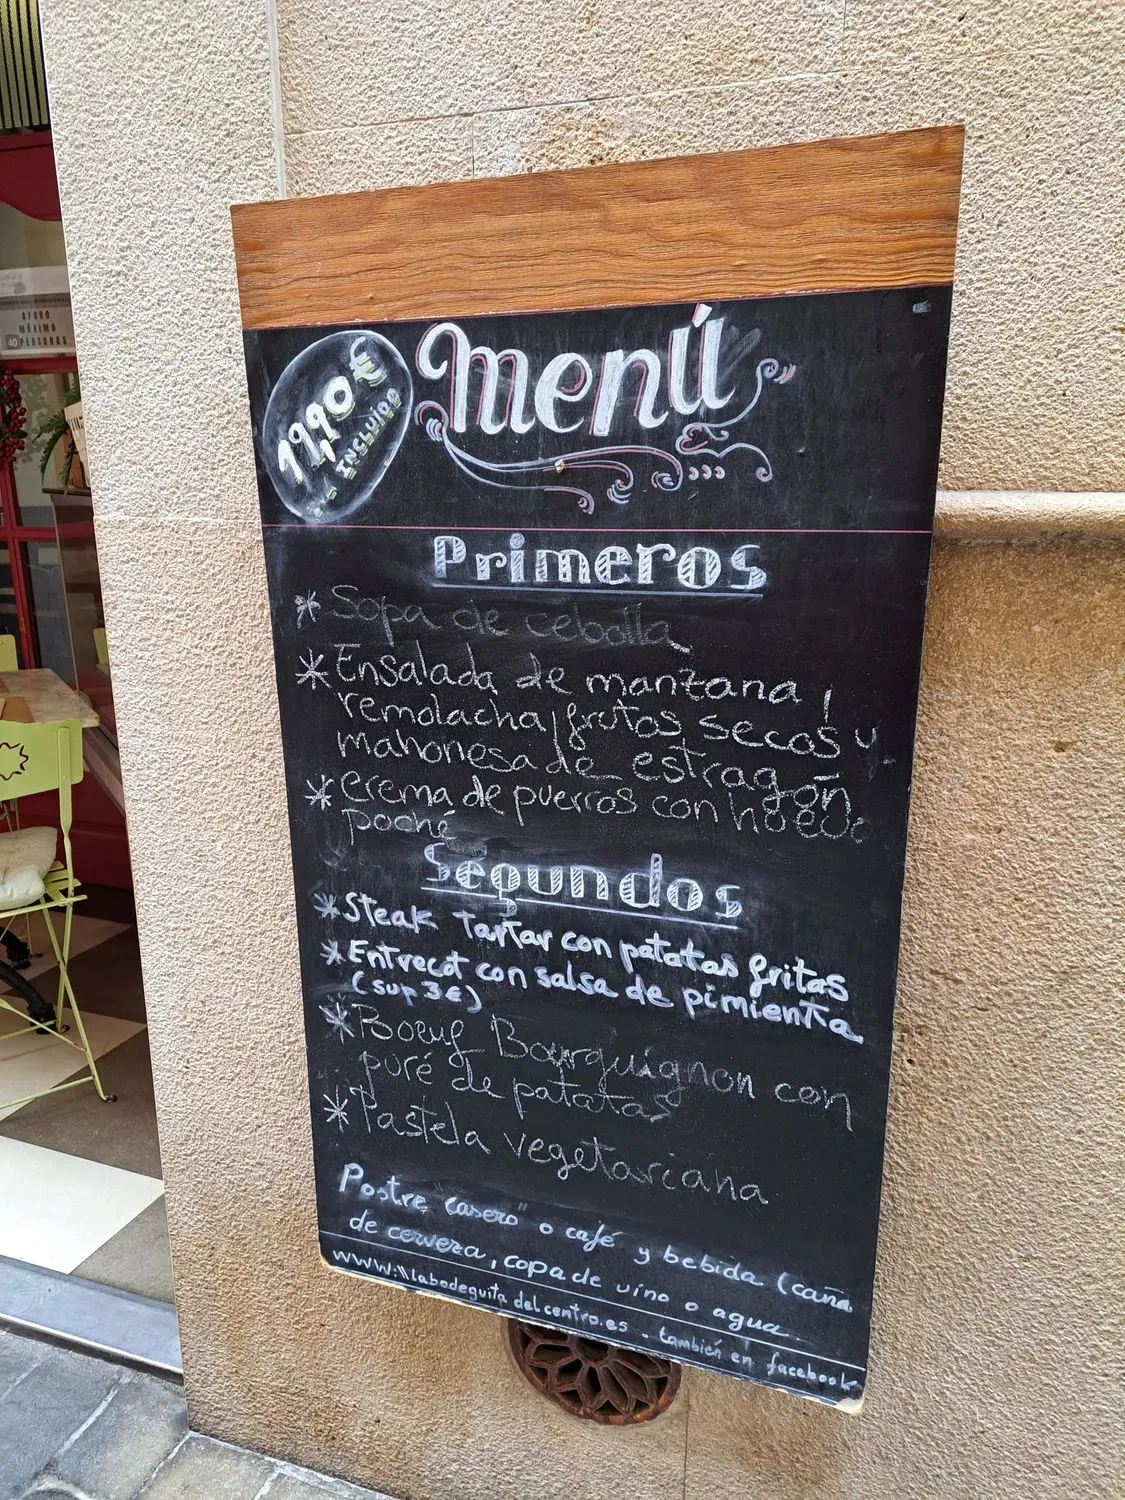 AFORO
MÁXIMO
40 PERSONAS
Menú
11,90€
INCLUIDO
Primeros
* Sopa de cebolla
* Ensalada de manzana,
remolacha, frutos secos y
mahonesa de estragón
* crema de puerros con huevo
poché
Segundos
* Steak Tartar con patatas fritas
* Entrecot con salsa de pimienta
(sup 3€)
* Boeuf Bourguignon con
puré de patatas
* Pastela vegetariana
Postre "casero" o café y bebida (caña
de cerveza, copa de vino o agua
www.\\labodeguita delcentro.es - también en facebook